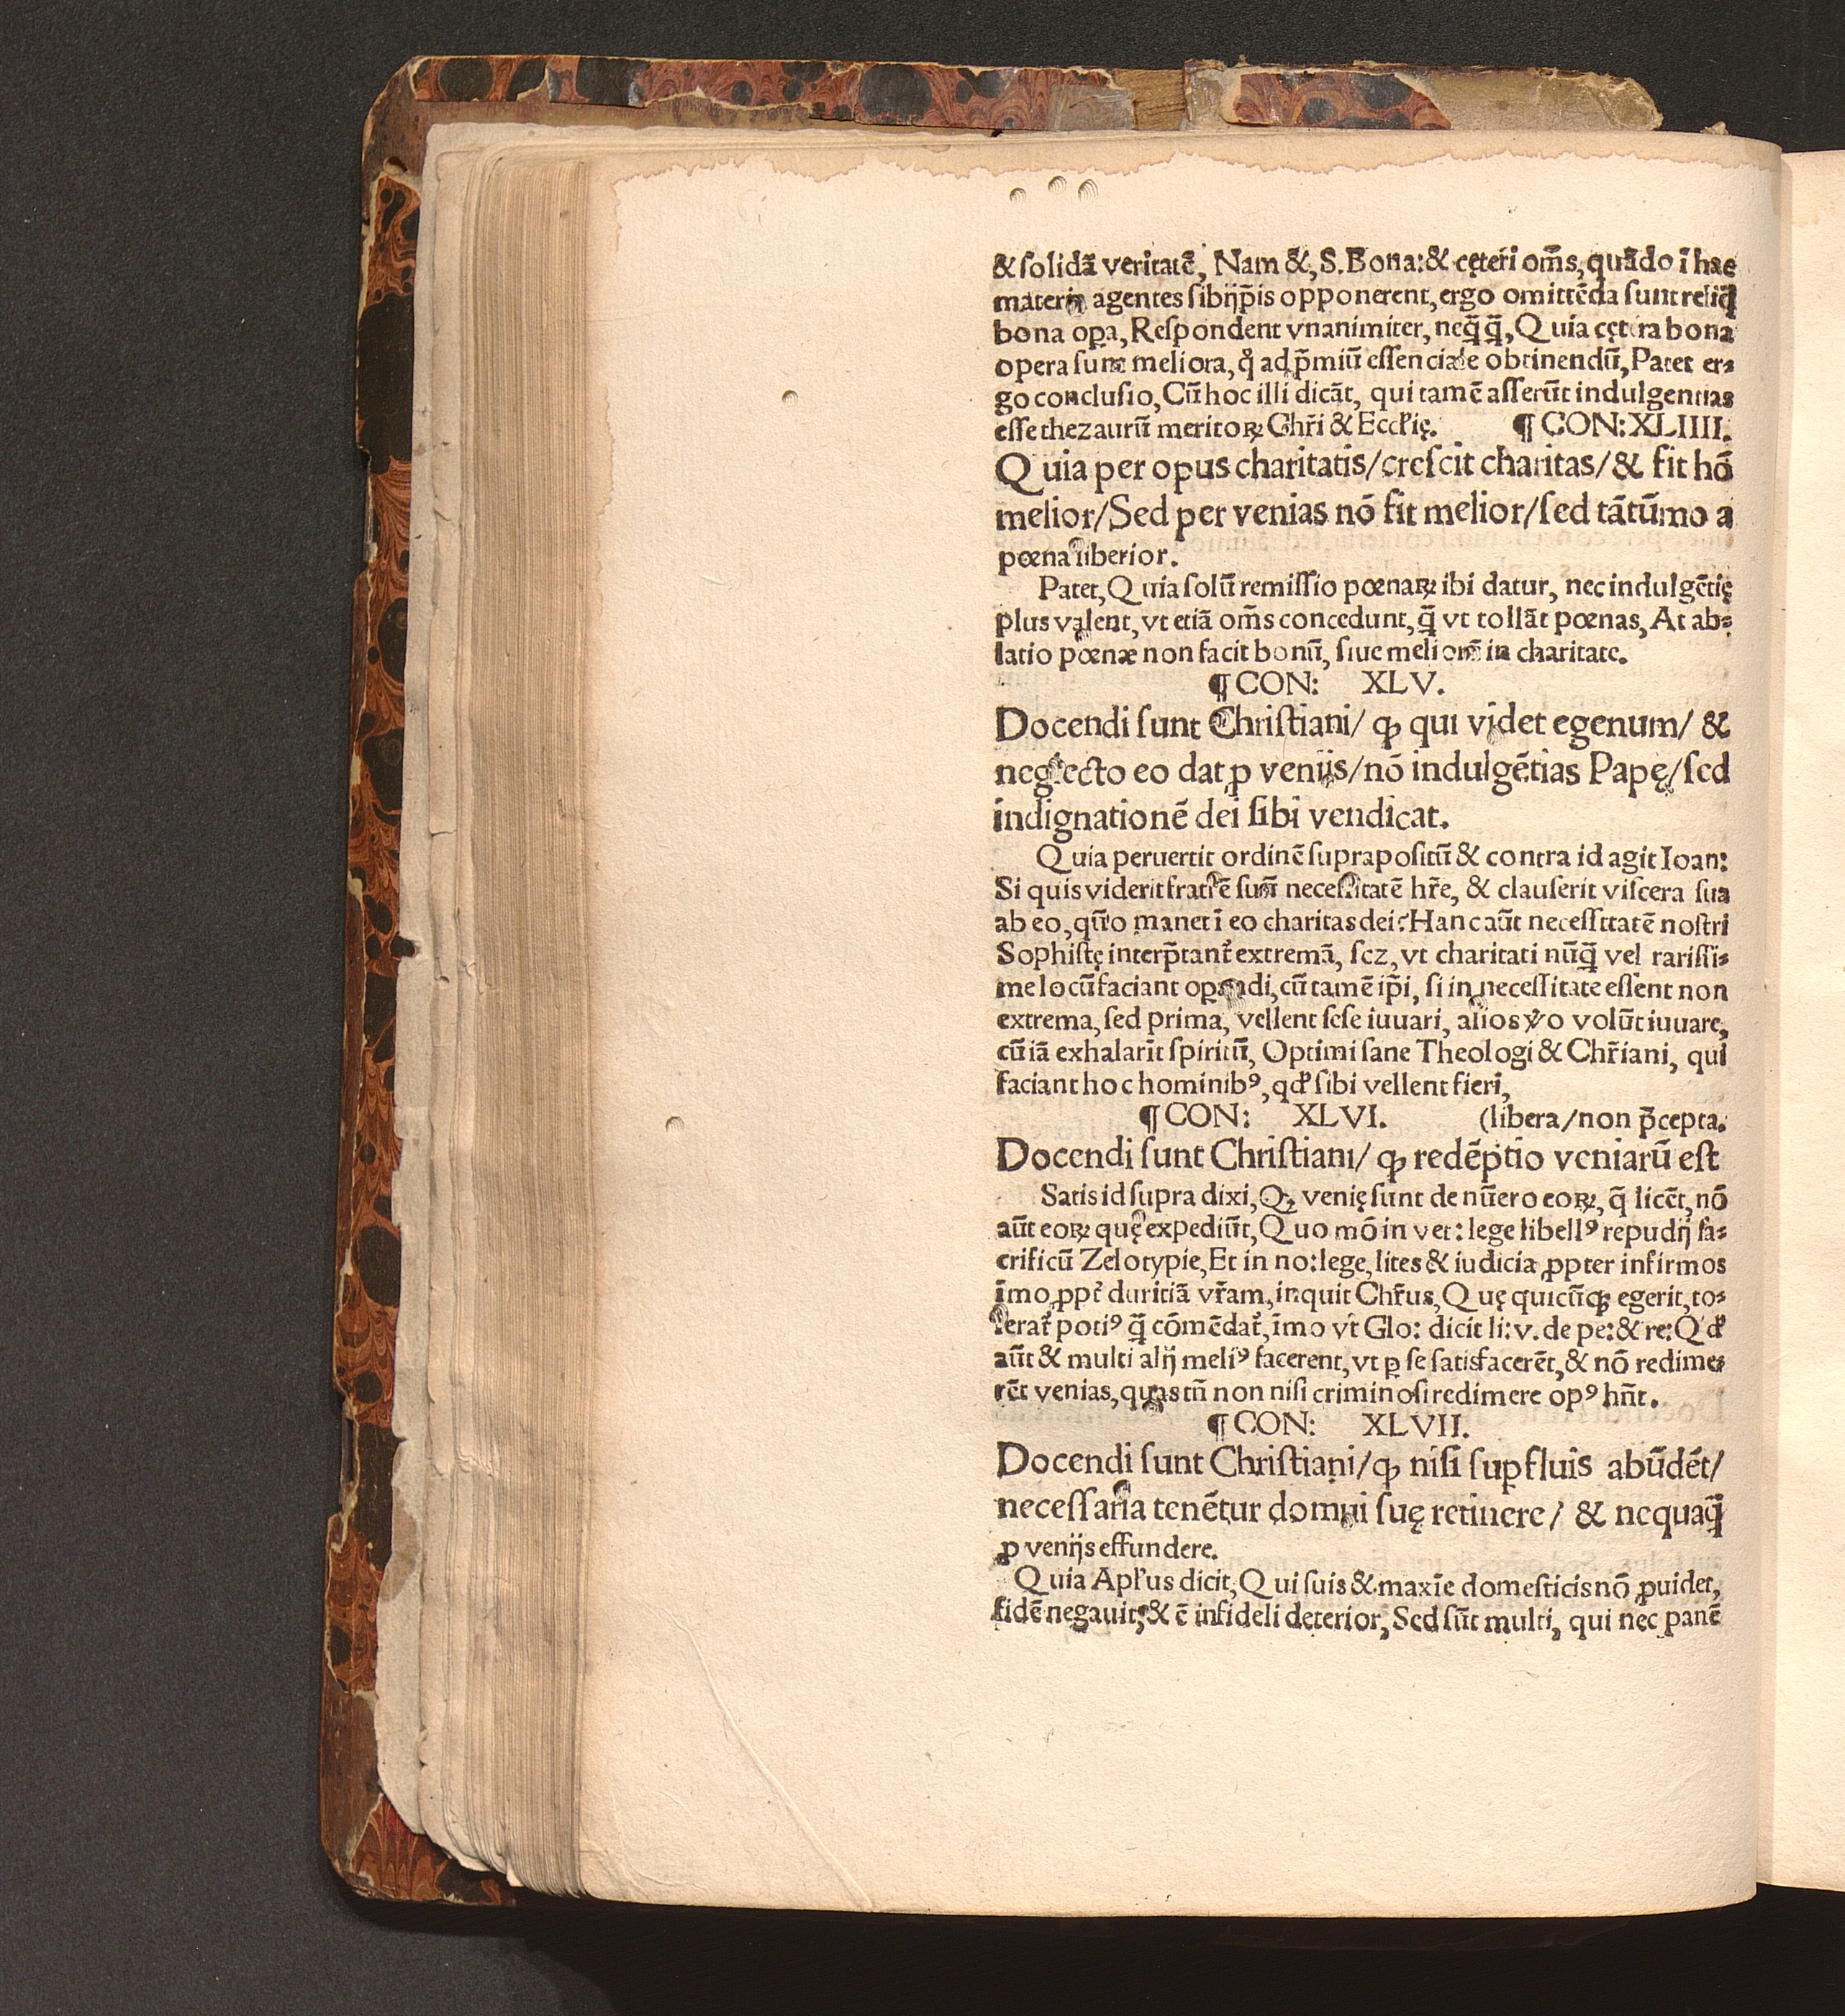 & ſolidã veritatẽ, Nam &, S. Bona: & cęteri om̃s, quãdo ĩ hac
materia agentes ſibijp̃is opponerent, ergo omittẽda ſunt reliq̃
bona oꝑa, Reſpondent vnanimiter, neq̃q̃, Quia cętera bona
opera ſunt meliora, qͦ ad p̃miũ eſſenciale obtinendũ, Patet er⸗
go concluſio, Cũ hoc illi dicãt, qui tamẽ aſſerũt indulgentias
eſſe thezaurũ meritoꝝ Chr̃i & Eccl'ię. ¶ CON: XLIIII.
Quia per opus charitatis/creſcit charitas/& fit hõ
melior/Sed per venias nõ fit melior/ſed tãtũmo a
pœna liberior.
Patet, Quia ſolũ remiſſio pœnaꝝ ibi datur, nec indulgẽtię
plus valent, vt etiã om̃s concedunt, q̃ vt tollãt pœnas, At ab⸗
latio pœnæ non facit bonũ, ſiue meliorẽ in charitate.
¶ CON: XLV.
Docendi ſunt Chriſtiani/ ꝙ qui videt egenum/ &
neglecto eo dat ꝓ venijs/nõ indulgẽtias Papę/ſed
indignationẽ dei ſibi vendicat.
Quia peruertit ordinẽ ſuprapoſitũ & contra id agit Ioan:
Si quis viderit fratrẽ ſuũ neceſſitatẽ hr̃e, & clauſerit viſcera ſua
ab eo, qũo manet ĩ eo charitas dei? Hanc aũt neceſſitatẽ noſtri
Sophiſtę interp̃tant᷑ extremã, ſcz, vt charitati nũq̃ vel rariſſi⸗
me locũ faciant oꝑandi, cũ tamẽ ip̃i, ſi in neceſſitate eſſent non
extrema, ſed prima, vellent ſeſe iuuari, alios v̾o volũt iuuare,
cũ iã exhalarĩt ſpiritũ, Optimi ſane Theologi & Chr̃iani, qui
faciant hoc hominibꝰ, qđ ſibi vellent fieri,
¶ CON: XLVI. (libera/non p̃cepta.
Docendi ſunt Chriſtiani/ ꝙ redẽptio veniarũ eſt
Satis id ſupra dixi, Qꝫ venię ſunt de nũero eoꝝ, q̃ licẽt, nõ
aũt eoꝝ quę expediũt, Quo mõ in vet: lege libellꝰ repudij ſa⸗
crificũ Zelotypie, Et in no: lege, lites & iudicia ꝓpter infirmos
ĩmo ꝓpt᷑ duritiã vr̃am, inquit Chr̃us, Quę quicũꝙ egerit, to⸗
lerat᷑ potiꝰ q̃ cõmẽdat᷑, ĩmo vt Glo: dicit li: v. de pe: & re: Qđ
aũt & multi alij meliꝰ facerent, vt ꝑ ſe ſatisfacerẽt, & nõ redime⸗
rẽt venias, quas tñ non niſi criminoſi redimere opꝰ hñt.
¶ CON: XLVII.
Docendi ſunt Chriſtiani/ꝙ niſi ſuꝑfluis abũdẽt/
neceſſaria tenẽtur domui ſuę retinere/ & nequaq̃
ꝓ venijs effundere.
Quia Apl'us dicit, Qui ſuis & maxĩe domeſticis nõ ꝓuidet,
fidẽ negauit, & ẽ infideli deterior, Sed ſũt multi, qui nec panẽ